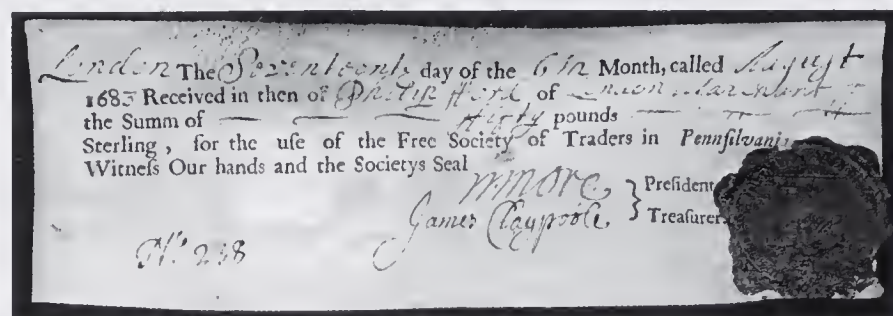 London The Seventeenth day of the 6th Month, called August
1683 Received in then of Philip Ford of London Marchant
the Summ of fifty pounds
Sterling, for the uſe of the Free Society of Traders in Pennſilvania
Witneſs Our hands and the Societys Seal
N More } Preſident
James Claypoole } Treaſurer
No. 238